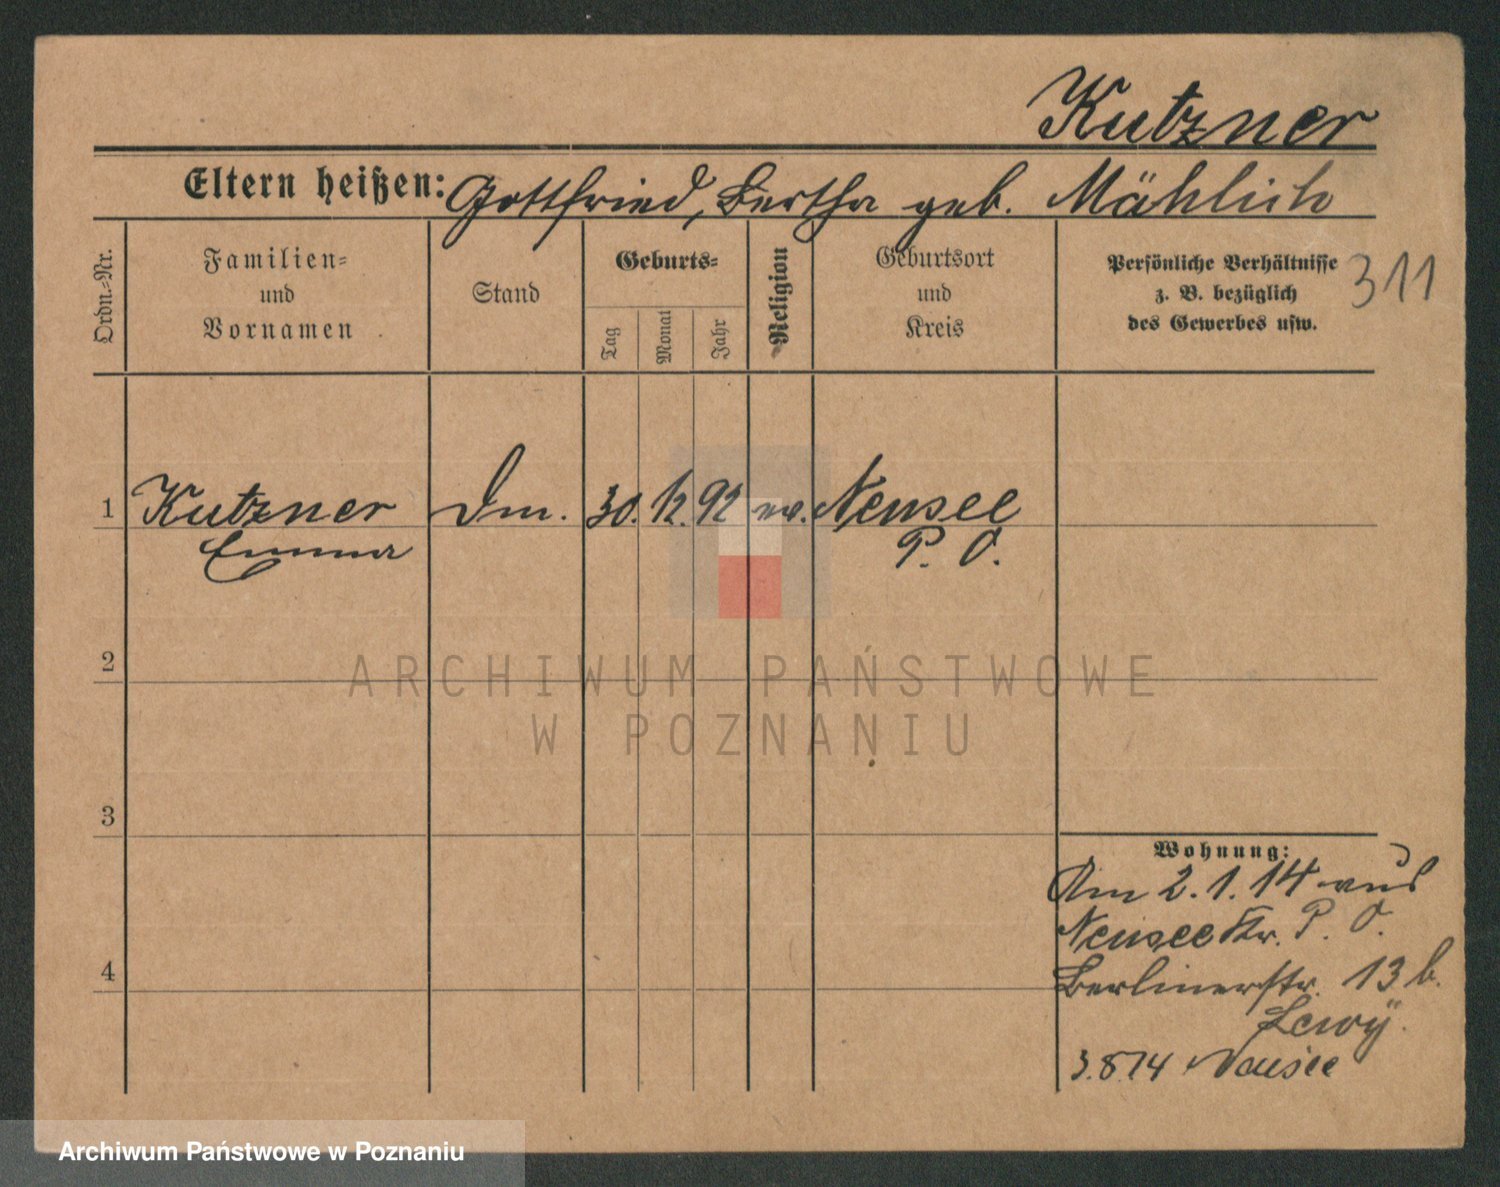 Kutzner
Eltern heißen: Gottfried, Bertha geb. Mählich
Ordn.-Nr.
Familien-
und
Vornamen
Stand
Geburts-
Tag
Monat
Jahr
Religion
Geburtsort
und
Kreis
Persönliche Verhältnisse
z. B. bezüglich
des Gewerbes usw.
311
1 Kutzner Dm. 30. 12. 92 ev. Neusee
Emma P. O.
2
ARCHIWUM PAŃSTWOWE
W POZNANIU
3
Wohnung:
Am 2.1.14 aus
Neusee Kr. P. O.
4
Berlinerstr. 13 b.
Lewÿ.
3.8.14 Neusee
Archiwum Państwowe w Poznaniu